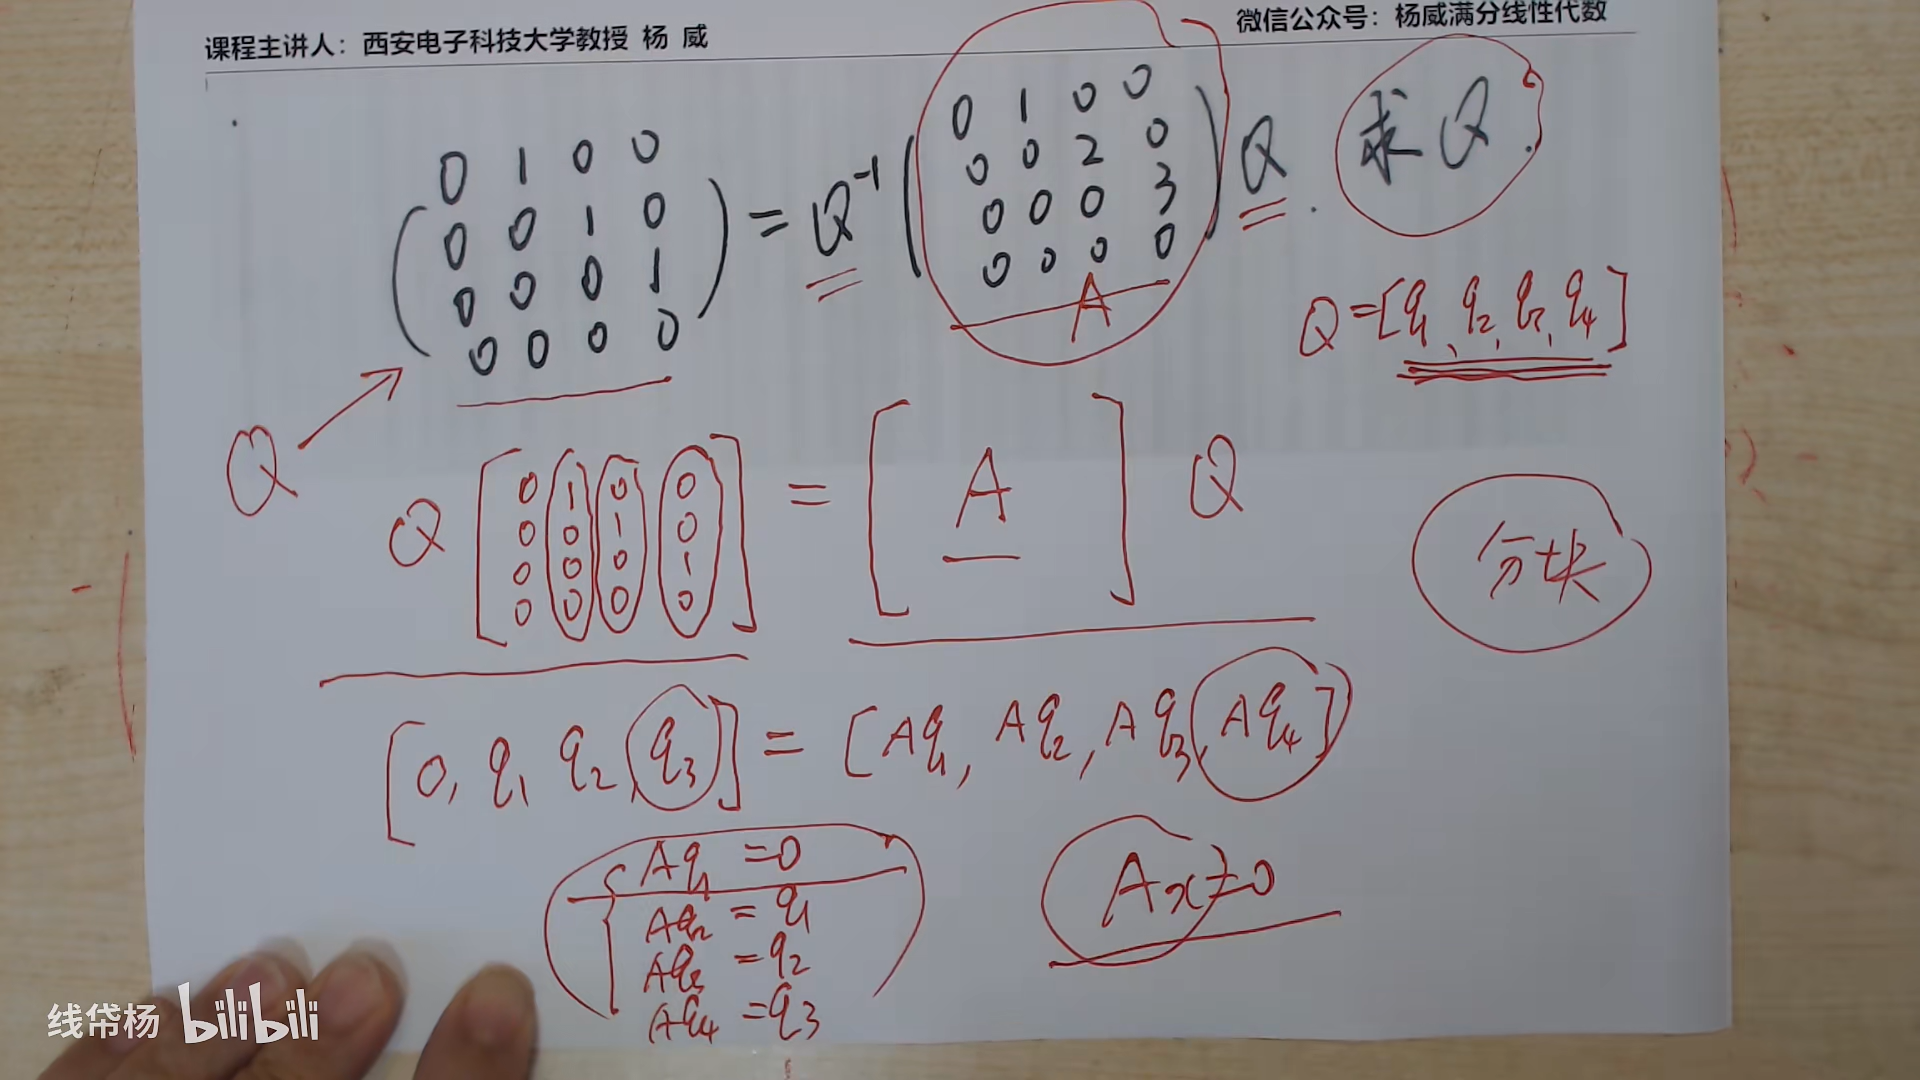 课程主讲人：西安电子科技大学教授 杨 威
微信公众号：杨威满分线性代数
( 0 1 0 0
0 0 1 0
0 0 0 1
0 0 0 0 ) = Q⁻¹ ( 0 1 0 0
0 0 2 0
0 0 0 3
0 0 0 0 ) Q . 求Q.
A
Q = [q₁, q₂, q₃, q₄]
Q
Q [ 0 1 0 0
0 0 1 0
0 0 0 1
0 0 0 0 ] = [ A ] Q
分块
[0, q₁ q₂, q₃] = [Aq₁, Aq₂, Aq₃, Aq₄]
{ Aq₁ = 0
Aq₂ = q₁
Aq₃ = q₂
Aq₄ = q₃
Ax=0
线帒杨 bilibili